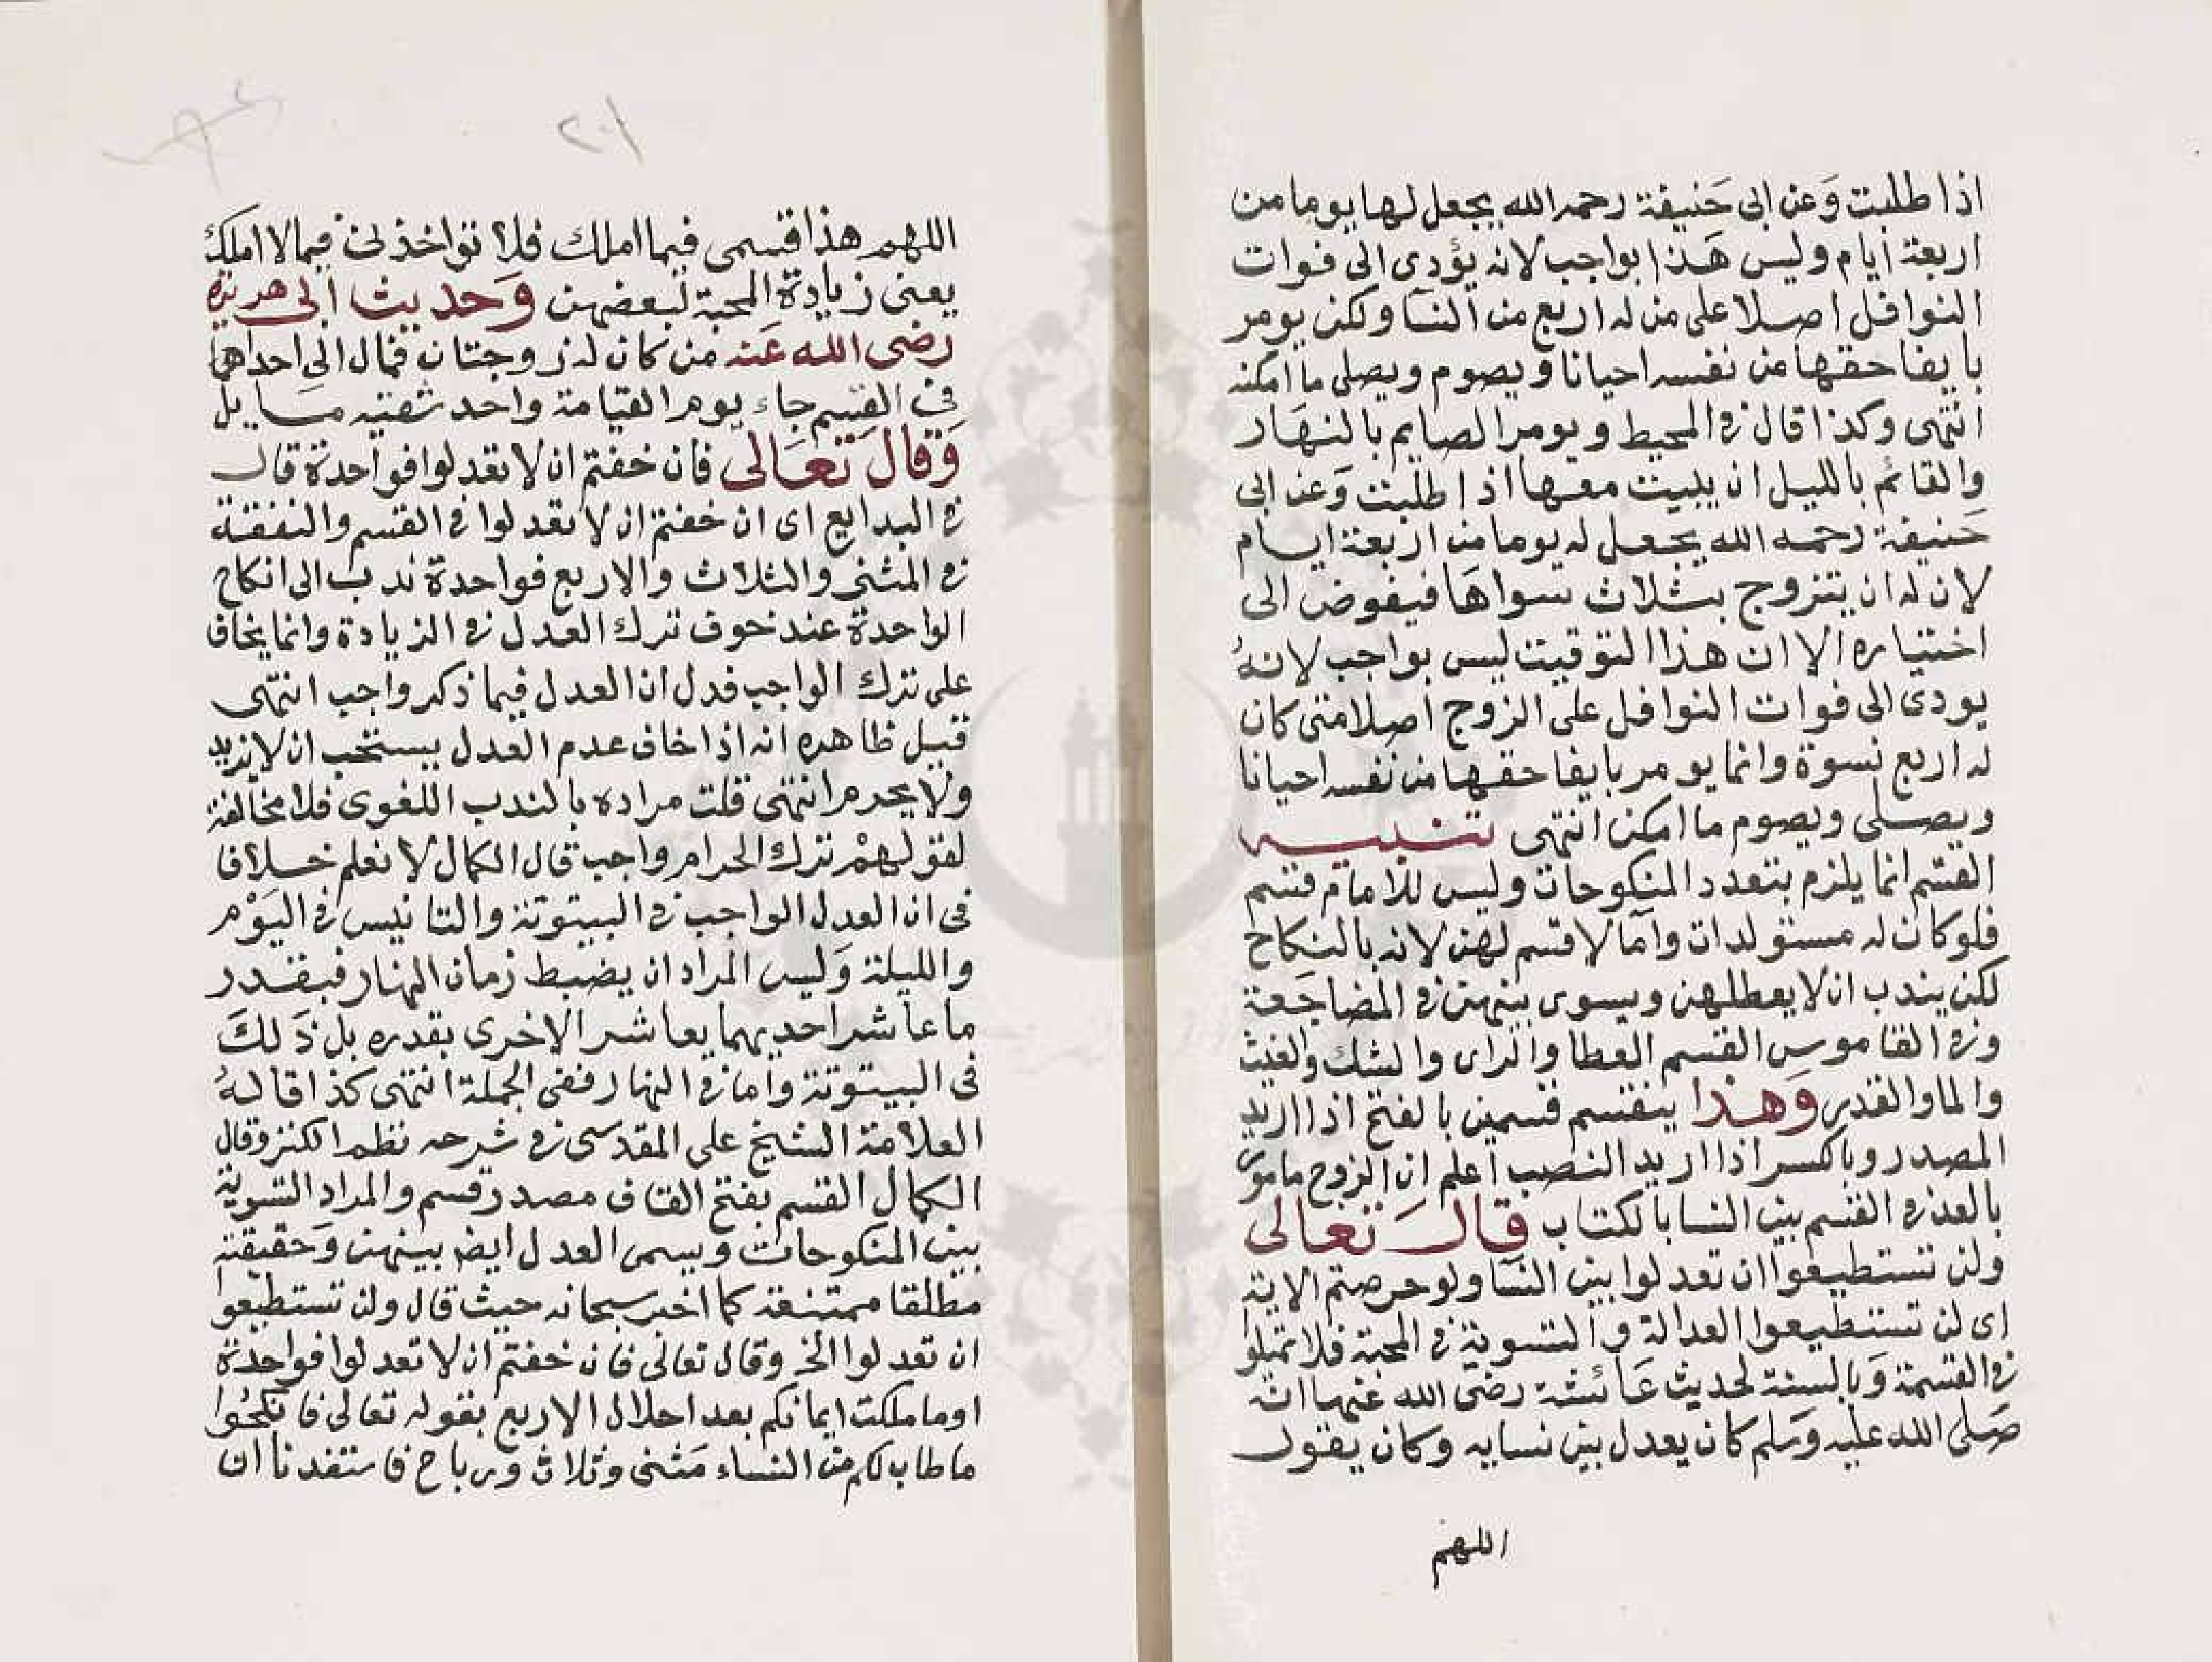 اذا طلبت وَعن ابى حَنيفة رحمه الله يجعل لها يوما من
اربعة ايام وليس هَذا بواجب لانه يؤدى الى فوات
النوافل اصلا على من له اربع من النسآ ولكن يومر
بايفا حقها من نفسه احيانا ويصوم ويصلى ما امكنه
انتهى وكذا قال فى المحيط ويومر الصايم بالنهَار
والقائم بالليل ان يبيت معها اذا طلبت وَعن ابى
حَنيفة رحمه الله يجعل له يوما من اربعة ايام
لان له ان يتزوج بثلاث سواهَا فيفوض الى
اختياره الا ان هذا التوقيت ليس بواجب لانهُ
يودى الى فوات النوافل على الزوج اصلا متى كان
له اربع نسوة وانما يومر بايفا حقها من نفسه احيانا
ويصلى ويصوم ما امكن انتهى تنبيه
القسم انما يلزم بتعدد المنكوحات وليس للاما م قسم
فلو كان له مستولدات وآما لا قسم لهن لانه بالنكاح
لكن يندب ان لا يعطلهن ويسوى بينهن فى المضاجَعة
وفى القاموس القسم العطا والراى والشك والغيث
والما والقدر وَهذا ينقسم قسمين بالفتح اذا اريد
المصدر وبالكسر اذا اريد النصب اعلم ان الزوج مامور
بالعدل فى القسم بين النسا بالكتاب قال تعالى
ولن تستطيعوا ان تعدلوا بين النسآ ولو حرصتم الاية
اى لن تستطيعوا العدالة والتسوية فى المحبة فلا تميلوا
فى القسمة وَبالسنة لحديث عَائشة رضى الله عنها انه
صَلى الله عليه وَسَلم كان يعدل بين نسايه وكان يقول
اللهم
١٠٢
اللهم هذا قسمى فيما املك فلا تواخذنى فيما لا املك
يعنى زيادة المحبة لبعضهن وَحديث ابى هريرة
رضى الله عَنه من كان له زوجتان فمال الى احداهما
فى القسم جاء يوم القيامة واحد شقيه مايل
وَقالَ تعَالى فان خفتم ان لا تعدلوا فواحدة قال
فى البدايع اى ان خفتم ان لا تعدلوا فى القسم والنفقة
فى المثنى والثلاث والاربع فواحدة ندب الى انكاح
الواحدة عند خوف ترك العدل فى الزيادة وانما يخاف
على ترك الواجب فدل ان العدل فيما ذكر واجب انتهى
قيل ظاهره انه اذا خاف عدم العدل يستحب ان لا يزيد
ولا يحرم انتهى قلت مراده بالندب اللغوى فلا مخالفة
لقولهمْ ترك الحرام واجب قال الكمال لا نعلم خلافا
فى ان العدل الواجب فى البيتوتة والتانيس فى اليَوْم
والليلة وَليس المراد ان يضبط زمان النهار فبقدر
ما عاشر احديهما يعاشر الاخرى بقدره بل ذَلكَ
فى البيتوتة واما فى النهار ففى الجملة انتهى كذا قالهُ
العلامة الشيخ على المقدسى فى شرحه نظم الكنز وقال
الكمال القسم بفتح القاف مصدر قسم والمراد التسوية
بين المنكوحات ويسمى العدل ايض بينهن وَحقيقته
مطلقا ممتنعة كما اخبر سبحانه حيث قال ولن تستطيعوا
ان تعدلوا الخ وقال تعالى فان خفتم ان لا تعدلوا فواحدة
او ما ملكت ايمانكم بعد احلال الاربع بقوله تعالى فانكحُوا
ما طاب لكم من النساء مَثنى وثلاث ورباع فاستفدنا ان